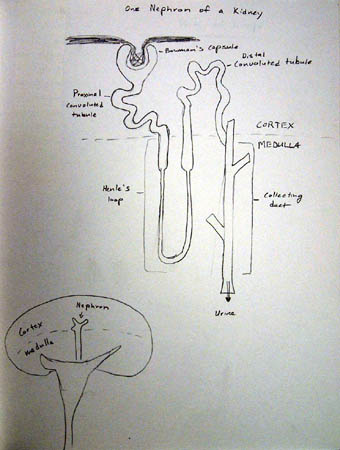 One Nephron of a Kidney
Bowman's capsule
Distal
convoluted tubule
Proximal
convoluted
tubule
CORTEX
MEDULLA
Henle's
loop
Collecting
duct
Urine
Nephron
Cortex
medulla